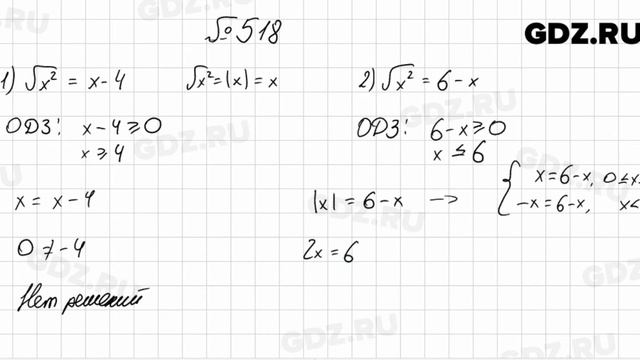 №518
GDZ.RU
1) √x² = x - 4
√x² = |x| = x
ОДЗ: x - 4 ⩾ 0
x ⩾ 4
x = x - 4
0 ≠ -4
Нет решений
2) √x² = 6 - x
ОДЗ: 6 - x ⩾ 0
x ≤ 6
|x| = 6 - x → { x = 6 - x, 0 ≤ x
-x = 6 - x, x <
2x = 6
GDZ.RU
GDZ.RU
GDZ.RU
GDZ.RU
GDZ.RU